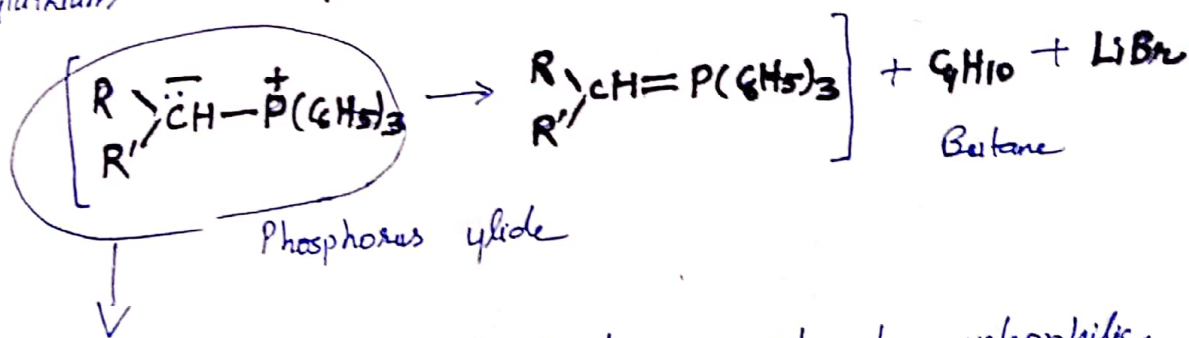 [ R R' C̈H⁻ — P⁺(C6H5)3 → R R' CH = P(C6H5)3 ] + C4H10 + LiBr
Butane
Phosphorus ylide